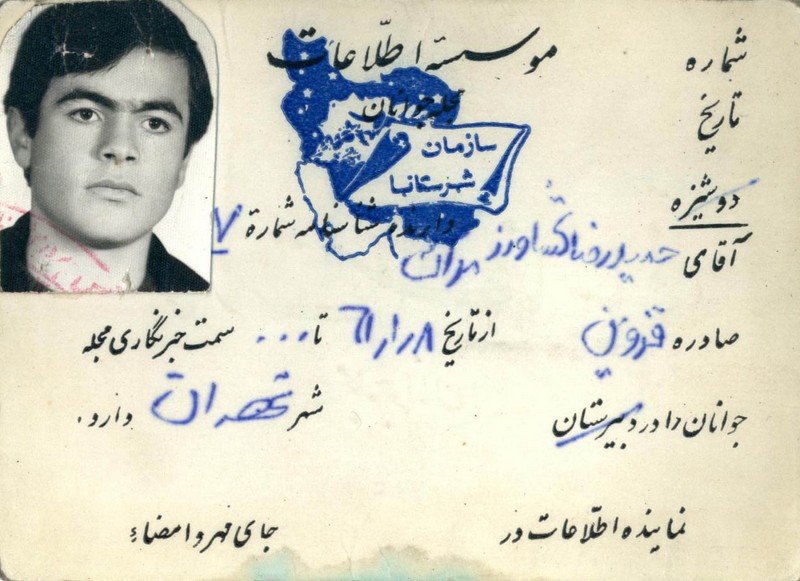 شماره
موسسهٔ اطّلاعات
تاریخ
مجله جوانان
سازمان
شهرستانها
دوشیزه
آقای حمیدرضا کشاورز دارندهٔ شناسنامه شمارهٔ ۷
صادره قزوین از تاریخ ۸ر۱ر۶۱ تا ... سمت خبرنگاری مجله
جوانان را در دبیرستان شهر تهران دارد.
نماینده اطّلاعات در جای مهر و امضاء